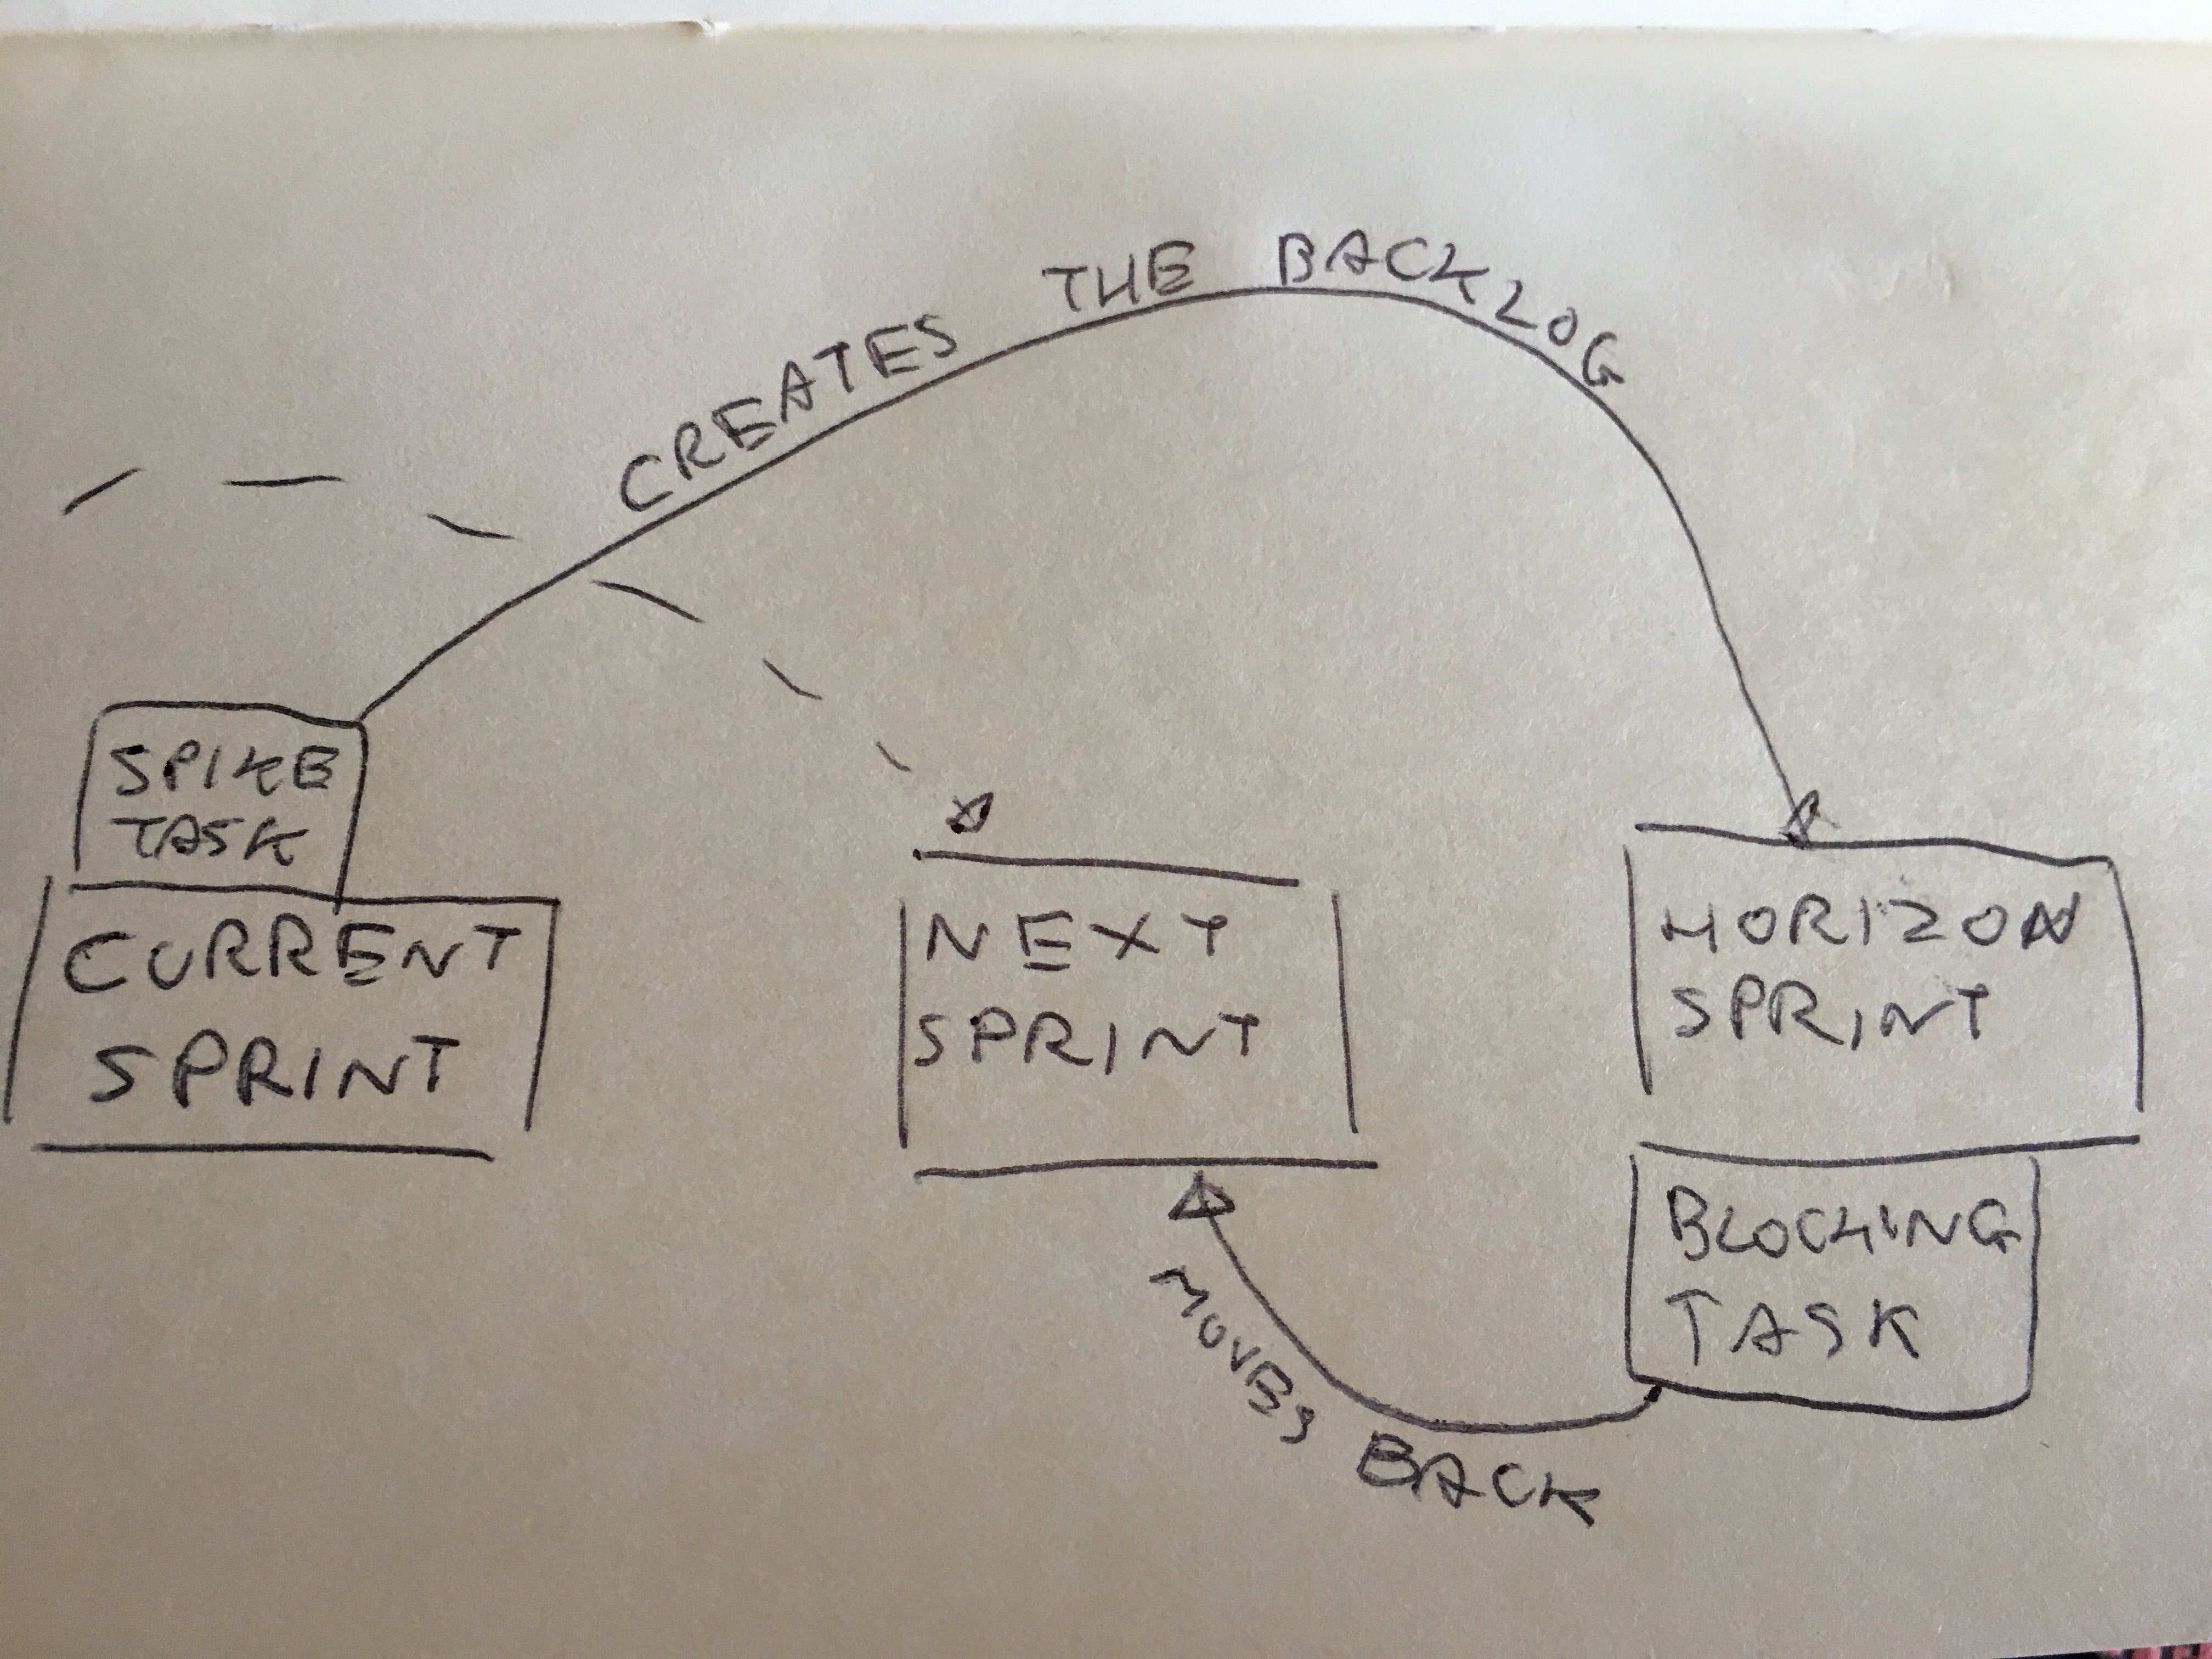 CREATES THE BACKLOG
SPIKE
TASK
CURRENT
SPRINT
NEXT
SPRINT
HORIZON
SPRINT
BLOCKING
TASK
MOVES BACK